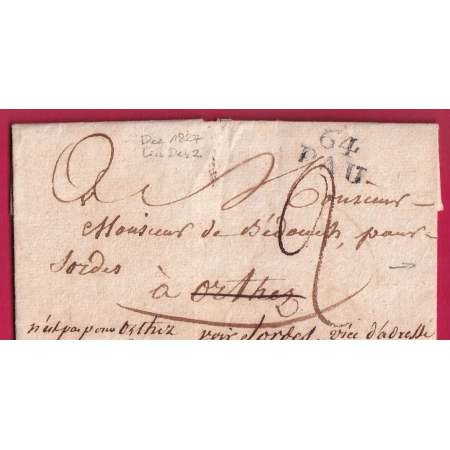 Dec 1827
64
PAU
A Monsieur
Monsieur de Bédouich, pour
Sordes
2
à Orthez
n'est pas pour Orthez voir Sordes, vice d'adresse